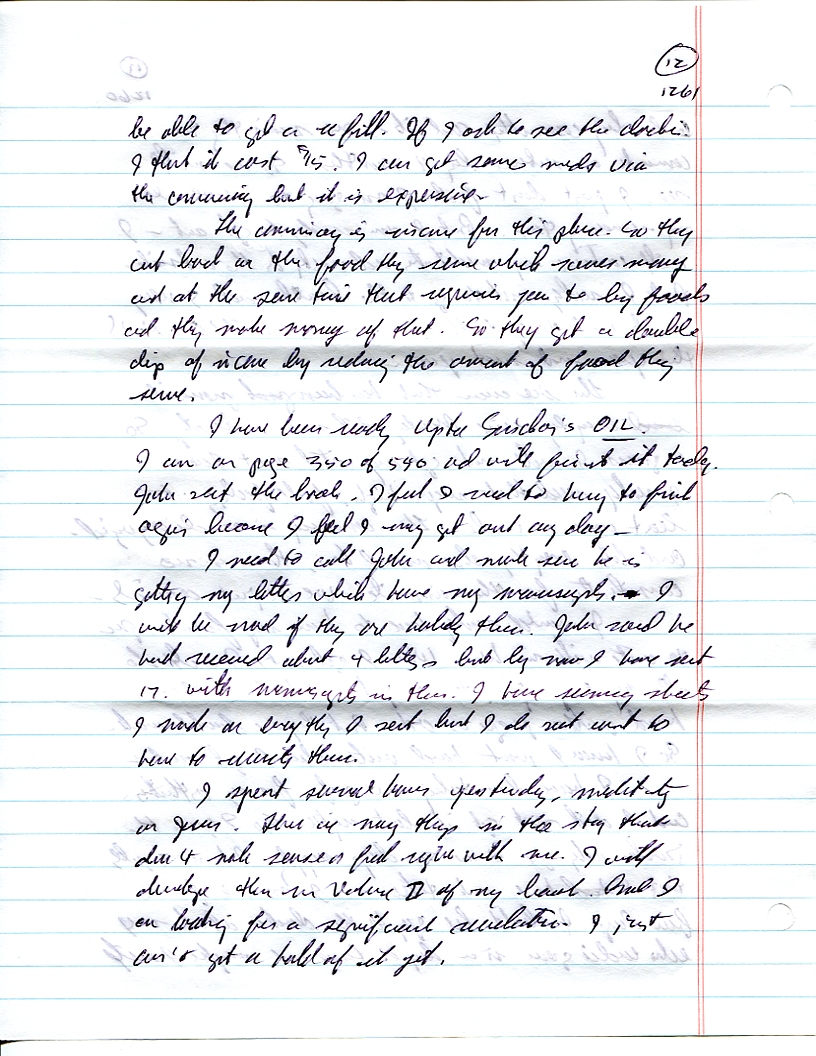 12
1261
be able to get a refill. If I ask to see the doctor
I think it cost $15. I can get some meds via
the commissary but it is expensive.
The commissary is income for this place. So they
cut back on the food they serve which saves money
and at the same time that requires you to buy foods
and they make money of that. So they get a double
dip of income by reducing the amount of food they
serve.
I have been reading Upton Sinclair's OIL.
I am on page 350 of 540 and will finish it today.
John sent the book. I feel I need to hurry to finish
because I feel I may get out any day —
I need to call John and make sure he is
getting my letters which have my manuscripts. I
will be mad if they are holding them. John said he
had received about 4 letters but by now I have sent
17. with manuscripts in them. I have summary sheets
I made on everything I sent but I do not want to
have to rewrite them.
I spent several hours yesterday, meditating
on Jesus. There are many things in the story that
don't make sense or feel right with me. I will
develop them in Volume II of my book. And I
am looking for a significant revelation I just
can't get a hold of it yet.